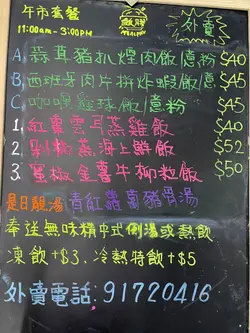 午市套餐
外賣
11:00am - 3:00PM
A. 蒜茸豬扒煙肉飯/意粉 $40
B. 西班牙肉片拼炸蝦/飯/意 $45
C. 咖喱雞球飯/意粉 $45
1. 紅棗雲耳蒸雞飯 $40
2. 剁椒蒸海上鮮飯 $52
3. 黑椒金菁牛柳粒飯 $50
是日靚湯 青紅蘿蔔豬骨湯
奉送無味精中式例湯或熱飲
凍飲+$3. 冷熱特飲+$5
外賣電話: 91720416